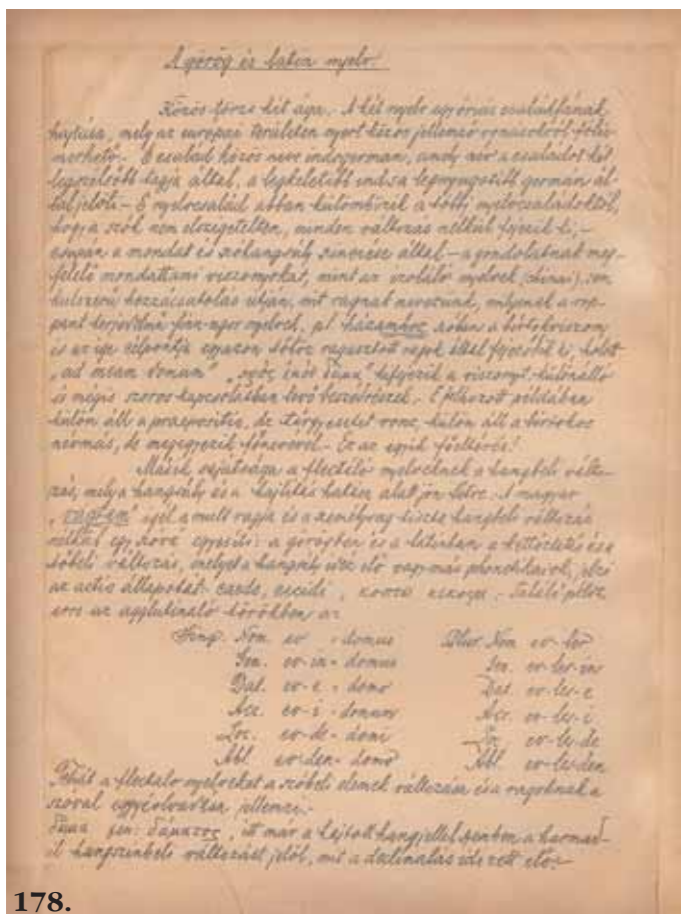 A görög és latin nyelv.
Közös törzs két ága. A két nyelv egy óriás családfának
hajtása, mely az európai területen nyert közös jellemző vonásokról felis-
merhető. E család közös neve indogermán, amely név a családot két
legszélsőbb tagja által, a legkeletibb ind s a legnyugatibb germán ál-
tal jelöli. E nyelvcsalád abban különbözik a többi nyelvcsaládoktól,
hogy a szók nem elszigetelten, minden változás nélkül fejezik ki,
csupán a mondat és szóhangsúly által a gondolatnak meg-
felelő mondattani viszonyokat, mint az izoláló nyelvek (chinai), sem
külszerű hozzácsatolás útján, mit ragnak nevezünk, milyenek a rop-
pant terjedelmű finn-ugor nyelvek, pl. házamhoz szóban a birtokviszony
és az ige célpontja egyazon tőhöz ragasztott ragok által fejeződik ki, holott
"ad meam domum" kifejezik a viszonyt különálló
és mégis szoros kapcsolatban levő beszédrészek. E felhozott példában
külön áll a praepositio, de tárgyesetet vonz, külön áll a birtokos
névmás, de megegyezik főnevével. Ez az egyik főeltérés!
Másik sajátsága a flectáló nyelveknek a hangbeli válto-
zás, mely a hangsúly és a hajlítás hatása alatt jön létre. A magyar
igél a mult ragja és a személyrag tiszta hangbeli változás
nélkül egy szóvá egyesíti: a görögben és a latinban a kettőztetés és a
tőbeli változás, melyet a hangsúly idéz elő vagy más phonetikai ok, jelzi
az actio állapotát: caedo, cecidi, . Találó példa
erre az agglutináló törökben az
Sing. Nom. ev - domus Plur. Nom. ev-ler
Gen. ev-in - domus Gen. ev-ler-in
Dat. ev-e - domo Dat. ev-ler-e
Acc. ev-i - domum Acc. ev-ler-i
Loc. ev-de - domi Loc. ev-ler-de
Abl. ev-den - domo Abl. ev-ler-den
Tehát a flectáló nyelveket a szóbeli elemek változása és a ragoknak a
szóval egybeolvadása jellemzi.
gen: , itt már a hajtott hangjellel szemben a
hangszínbeli változást jelöl, mit a declinálás idézett elő.
178.